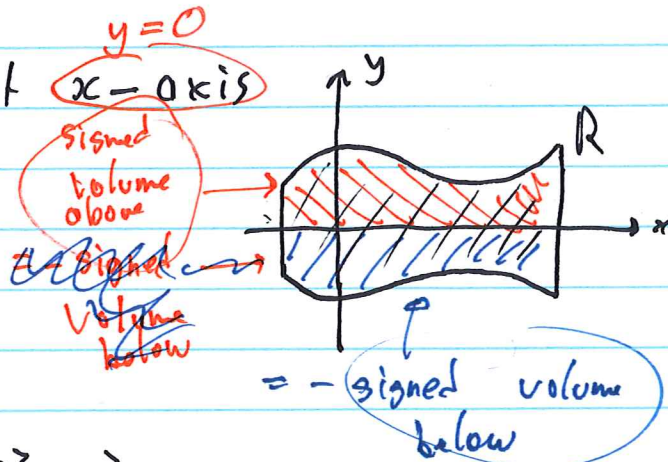 y = 0
x - axis
y
signed
volume
above
R
= - signed
volume
below
x
= - signed volume
below